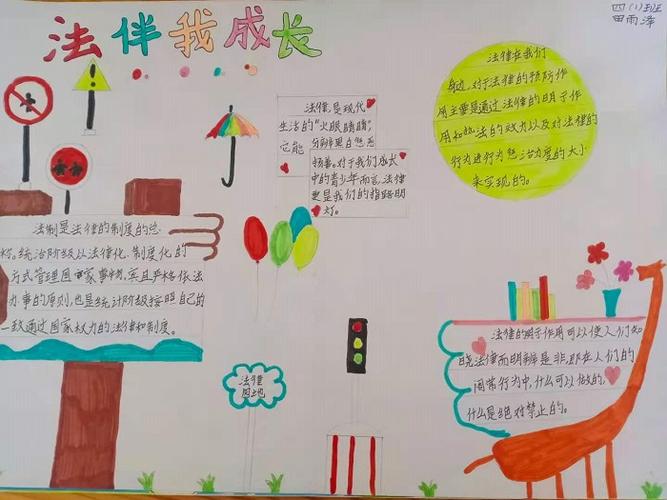 四(1)班
田雨泽
法伴我成长
法律,是现代
生活的“火眼睛睛”,
它能分辨黑白惩恶
扬善。对于我们成长
中的青少年而言,法律
更是我们的指路明
灯。
法律在我们
身边,对于法律的预防作
用主要是通过法律的明示作
用和执法的效力以及对法律的
行为进行为惩治力度的大小
来实现的。
法制是法律的制度的总
称。统治阶级以法律化、制度化的
方式管理国家事务,实且严格依法
办事的原则,也是统计阶级按照自己的
一致通过国家权力的法律和制度。
法律
园地
法律的明示作用可以使人们知
晓法律而明辨是非,即在人们的
日常行为中,什么可以做的,
什么是绝对禁止的。